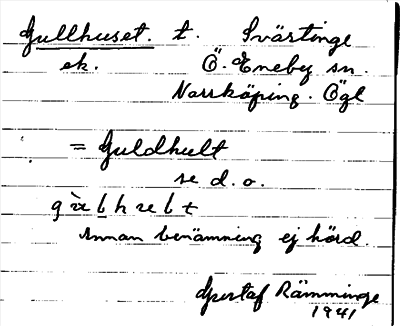 Gullhuset. t. Svärtinge
ek. Ö. Eneby sn.
Norrköping. Ögl
= Guldhult
se d. o.
Annan benämning ej hörd.
Gustaf Rämminge
1941